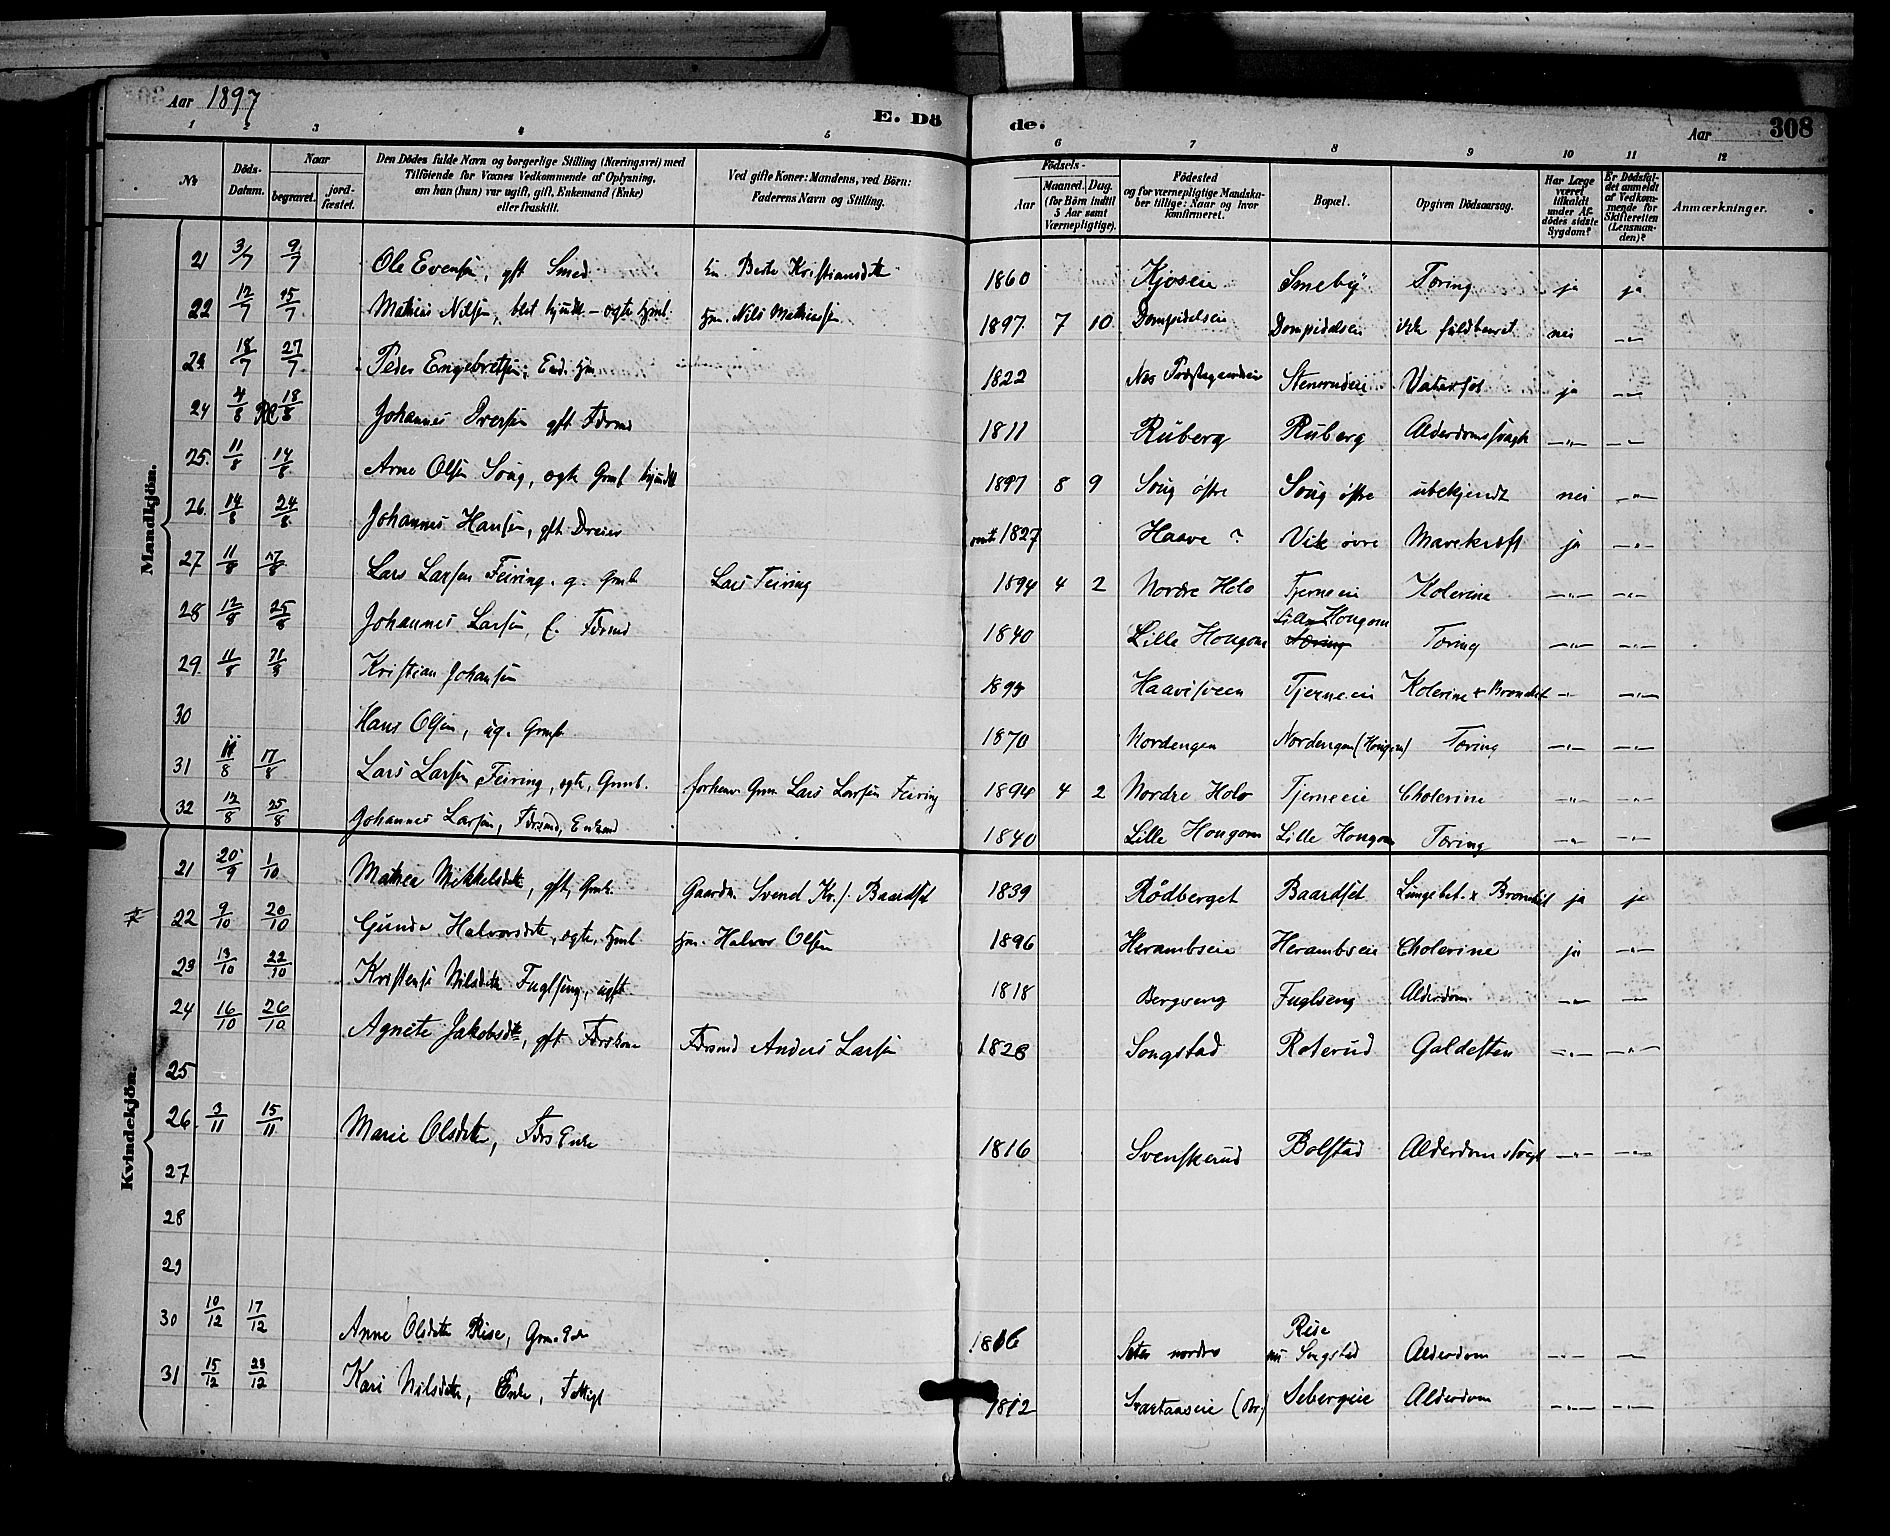 Aar 1897 E. Dö de. Aar 308
1 2 3 4 5 6 7 8 9 10 11 12
№ Döds-Datum. Naar begravet. jord-fæstet. Den Dödes fulde Navn og borgerlige Stilling (Næringsvei) med Tilföiende for Voxnes Vedkommende af Oplysning, om han (hun) var ugift, gift, Enkemand (Enke) eller fraskilt. Ved gifte Koner: Mandens, ved Börn: Faderens Navn og Stilling. Födsels- Aar Maaned. Dag. (for Börn indtil 5 Aar samt Værnepligtige). Födested og for værnepligtige Mandska-ber tillige: Naar og hvor konfirmeret. Bopæl. Opgiven Dödsaarsag. Har Læge været tilkaldt under Af-dödes sidste Sygdom? Er Dödsfal-det anmeldt af Vedkom-mende for Skifteretten (Lensman-den)? Anmærkninger.
Mandkjön.
21 3/7 9/7 Ole Evensen, gft Smed Berte Kristiansdtr 1860 Kjoseie Smeby Tæring ja ja
22 12/7 15/7 Mathias Nilsen, ogte Hm. Nils Mathiassen 1897 7 10 Dompidalseie Dompidalseie ikke fuldbaaret nei -"-
23 18/7 27/7 Peder Engebretsen, 1822 Nes Stenerudeie Vatersot ja -"-
24 4/8 18/8 Johannes Iversen gft Fdrmd 1811 Ruberg Ruberg Alderdomssvagh -"- -"-
25. 11/8 14/8 Arne Olsen Soug, ogte Grmb 1897 8 9 Soug østre Soug østre ubekjendt nei -"-
26. 14/8 24/8 Johannes Hansen, gft Dreier omtr 1827 Haave ? Vik øvre Mavekræft ja -"-
27 11/8 17/8 Lars Larsen Feiring. g. Grmb Lars Feiring 1894 4 2 Nordre Holo Tjerneeie Kolerine -"- -"-
28 12/8 25/8 Johannes Larsen, E. Fdrmd 1840 Lille Hougom Lille Hougom Tæring Tæring -"- -"-
29. 11/8 21/8 Kristian Johansen 1895 Haavisveen Tjerneeie Kolerine & Bronchit -"- -"-
30 Hans Olsen, ug. Grmb 1870 Nordengen Nordengen (Hougom) Tæring -"- -"-
31 11/8 17/8 Lars Larsen Feiring, ogte, Grmb. forhenv. Grm. Lars Larsen Feiring 1894 4 2 Nordre Holo Tjerneeie Cholerine -"- -"-
32 12/8 25/8 Johannes Larsen, Fdrmd, Enkmd 1840 Lille Hougom Lille Hougom Tæring -"- -"-
Kvindekjön.
21 20/9 1/10 Mathea Mikkelsdtr, gft, Grmk. Gaardm. Svend Kr.s. Baardset 1839 Rødberget Baardset Lungebet. & Bronchit ja ja
22 9/10 20/10 Gunda Halvorsdtr, ogte, Hmb Hm. Halvor Olsen 1896 Herambseie Herambseie Cholerine ja -"-
23 13/10 22/10 Kristense Nilsdtr Fuglseng, ugft. 1818 Bergseng Fuglseng Alderdom -"- -"-
24 16/10 26/10 Agnete Jakobsdtr, gft Fdrskone Fdrmd Anders Larsen 1828 Songstad Roterud Galdesten -"- -"-
25
26 3/11 15/11 Marie Olsdtr, Fdrs Enke 1816 Svenskerud Bolstad Alderdomssvagh -"- -"-
27
28
29
30 10/12 17/12 Anne Olsdtr Rise, 1816 Seter nordre Rise nu Songstad Alderdom -"- -"-
31 15/12 23/12 Kari Nilsdtr, Enke, Fattigl 1812 Svartaaseie Sebergeie Alderdom -"- -"-